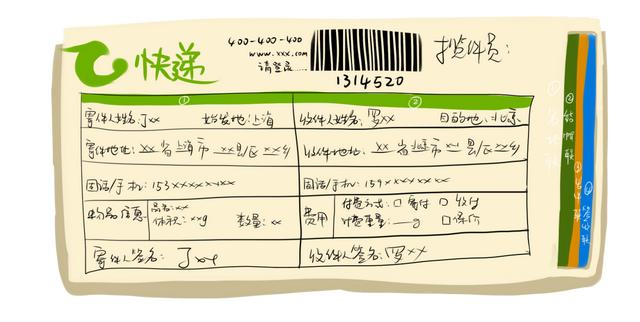 快递
400-400-400
www.xxx.com
请登录......
1314520
揽件员:
① ②
寄件人姓名:丁xx 始发地:上海 收件人姓名:罗xx 目的地:北京
寄件地址: xx省上海市 xx县/区xx乡 收件地址: xx省北京市 xx县/区xx乡
固话/手机: 153xxxxxxxx 固话/手机: 159xxxxxxxx
物品信息 品名:xx 费用 付费方式: 口寄付 口收付
体积: xxg 数量: xx 计费重量: __g 口保价
寄件人签名: 丁xx 收件人签名: 罗xx
①
②
③
④